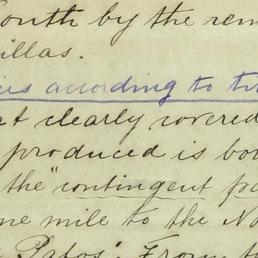 outh by the rem
illas.
ies according to tw
at clearly covered
produced is bou
the "contingent pa
ne mile to the No
Patos". From th